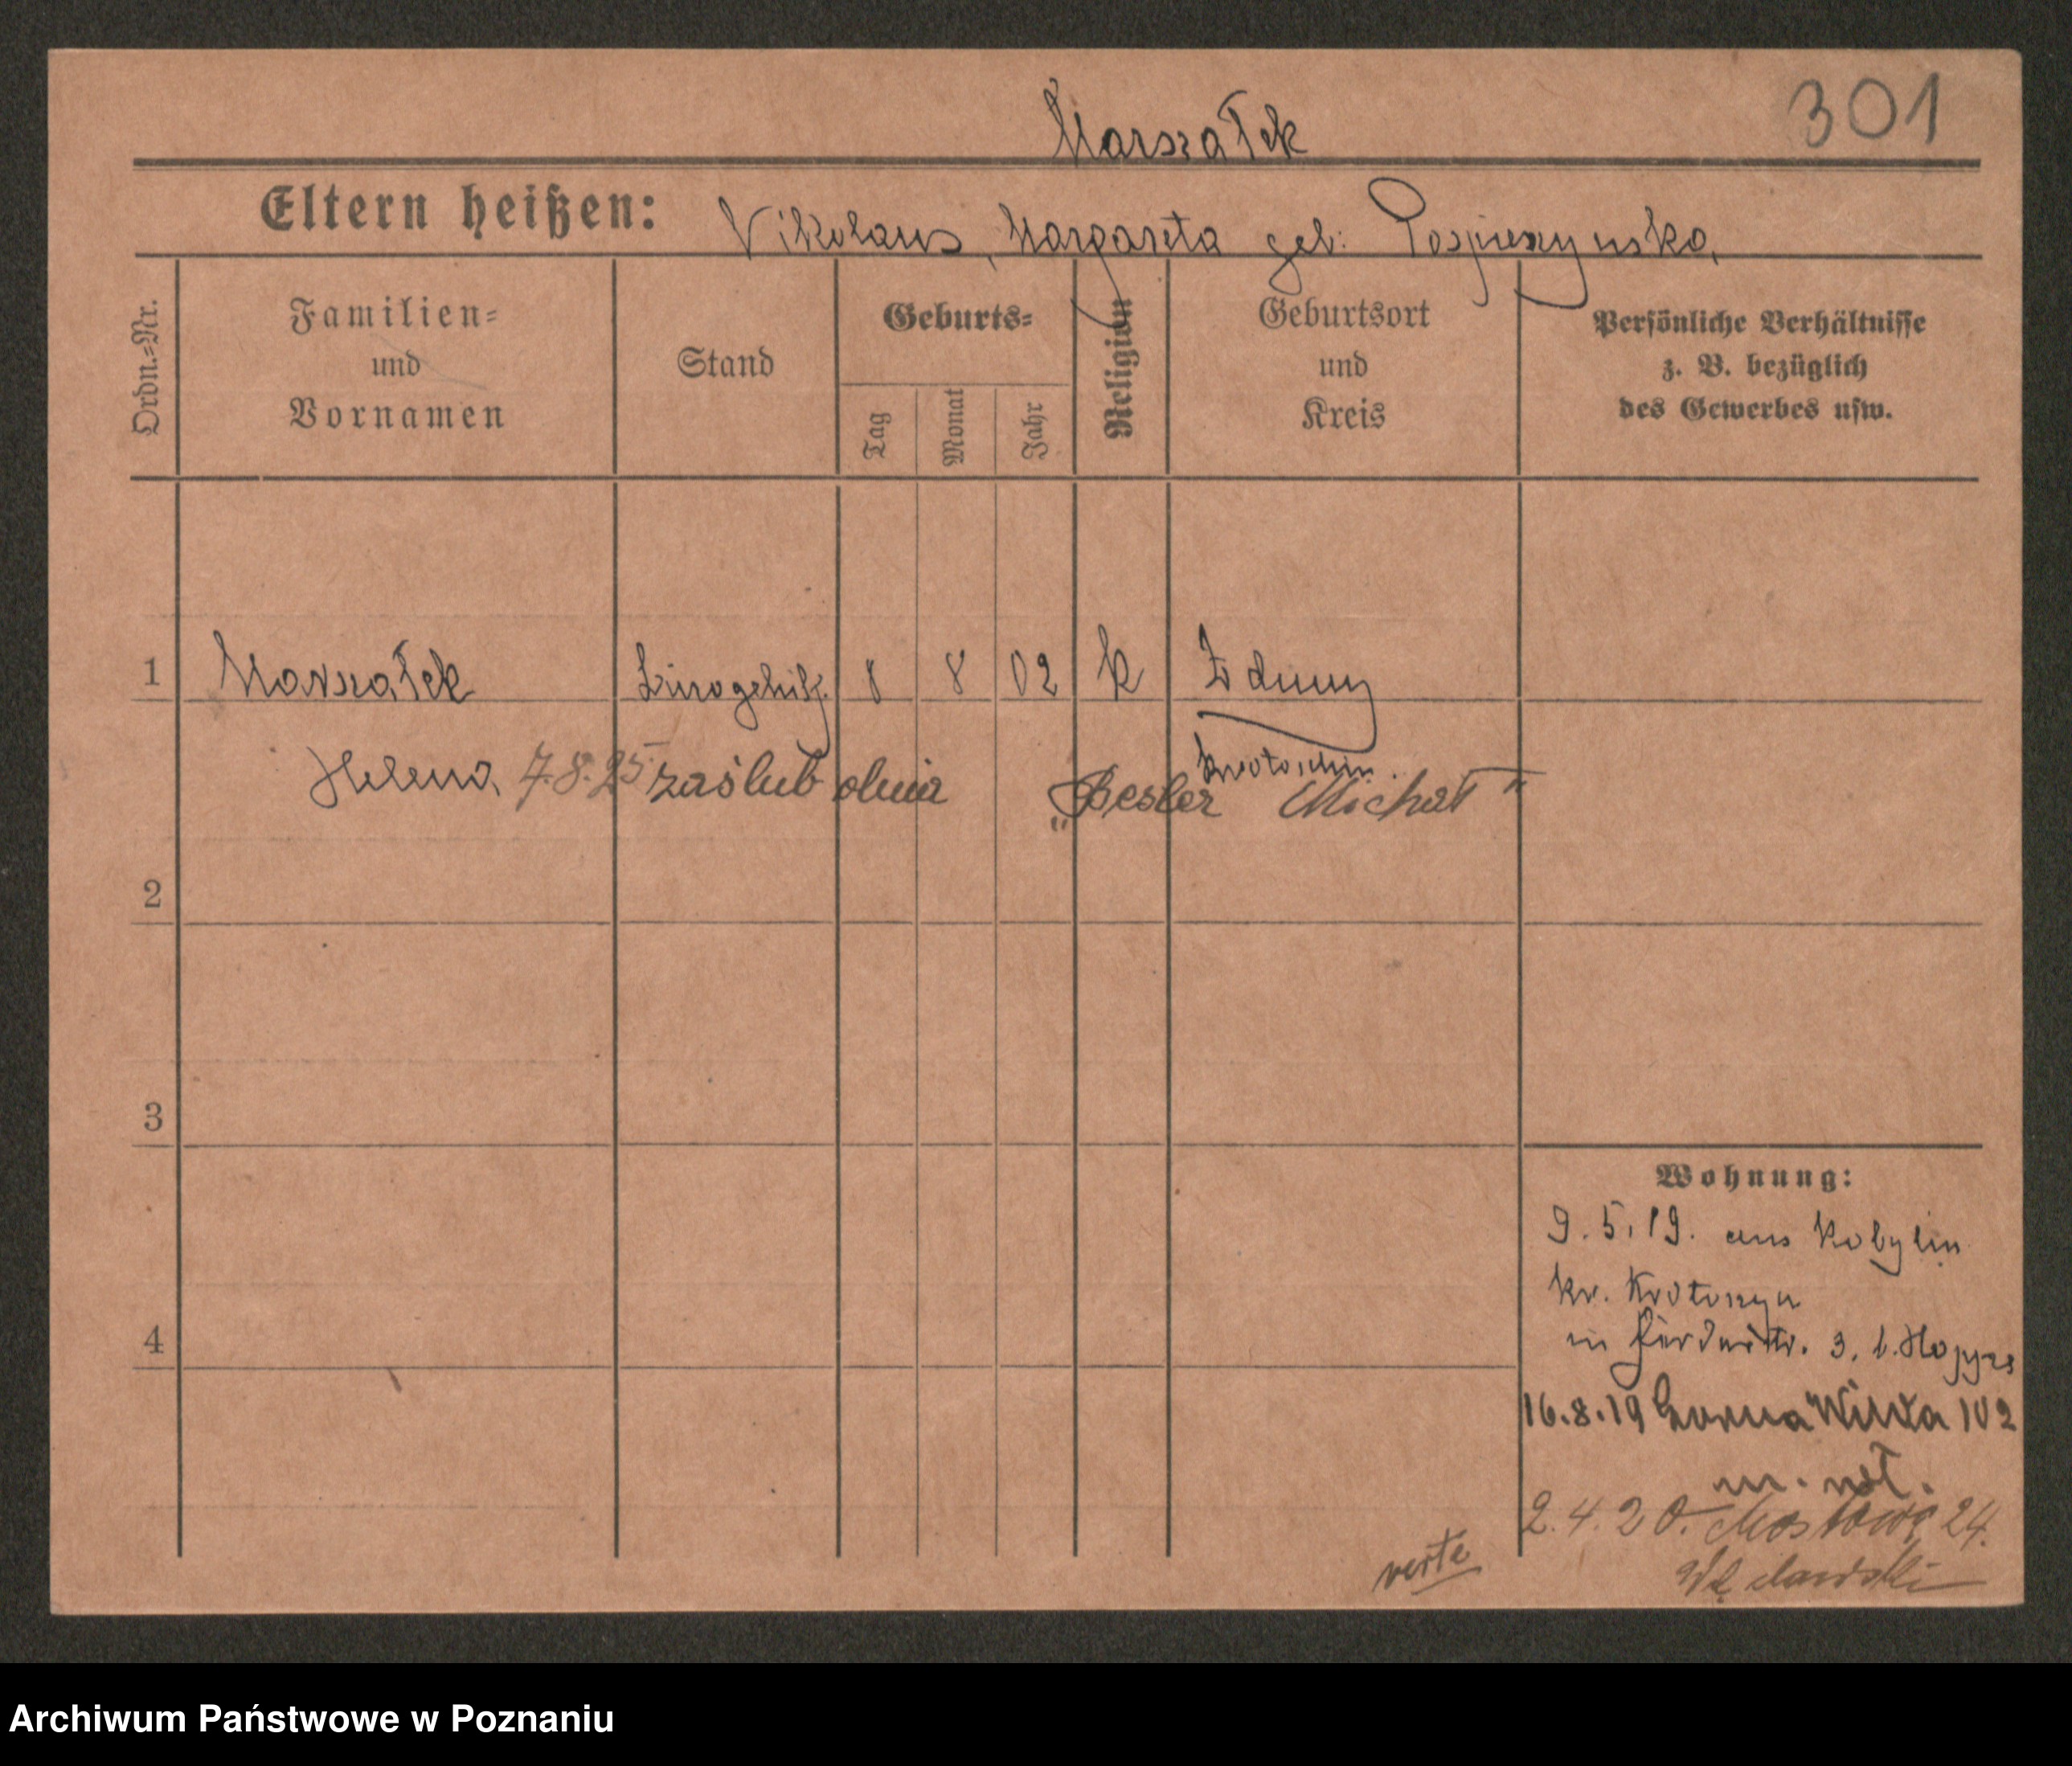 Marszałek
301
Eltern heißen: Nikolaus, Margareta geb:
Ordn.-Nr.
Familien- und Vornamen
Stand
Geburts-
Tag
Monat
Jahr
Religion
Geburtsort und Kreis
Persönliche Verhältnisse
z. B. bezüglich
des Gewerbes usw.
1 Marszałek Bürogehilf. 8 8 02 k Zduny
Krotoschin.
Helena, 7.8.25 zaślub olnia „Besler Michał"
2
3
4
Wohnung:
9.5.19. aus Kobylin
Kr. Krotoszyn
in 3. b.
16.8.19 Gorna Wilda 102
m. not.
2.4.20. Mostowa 24.
verte
Archiwum Państwowe w Poznaniu